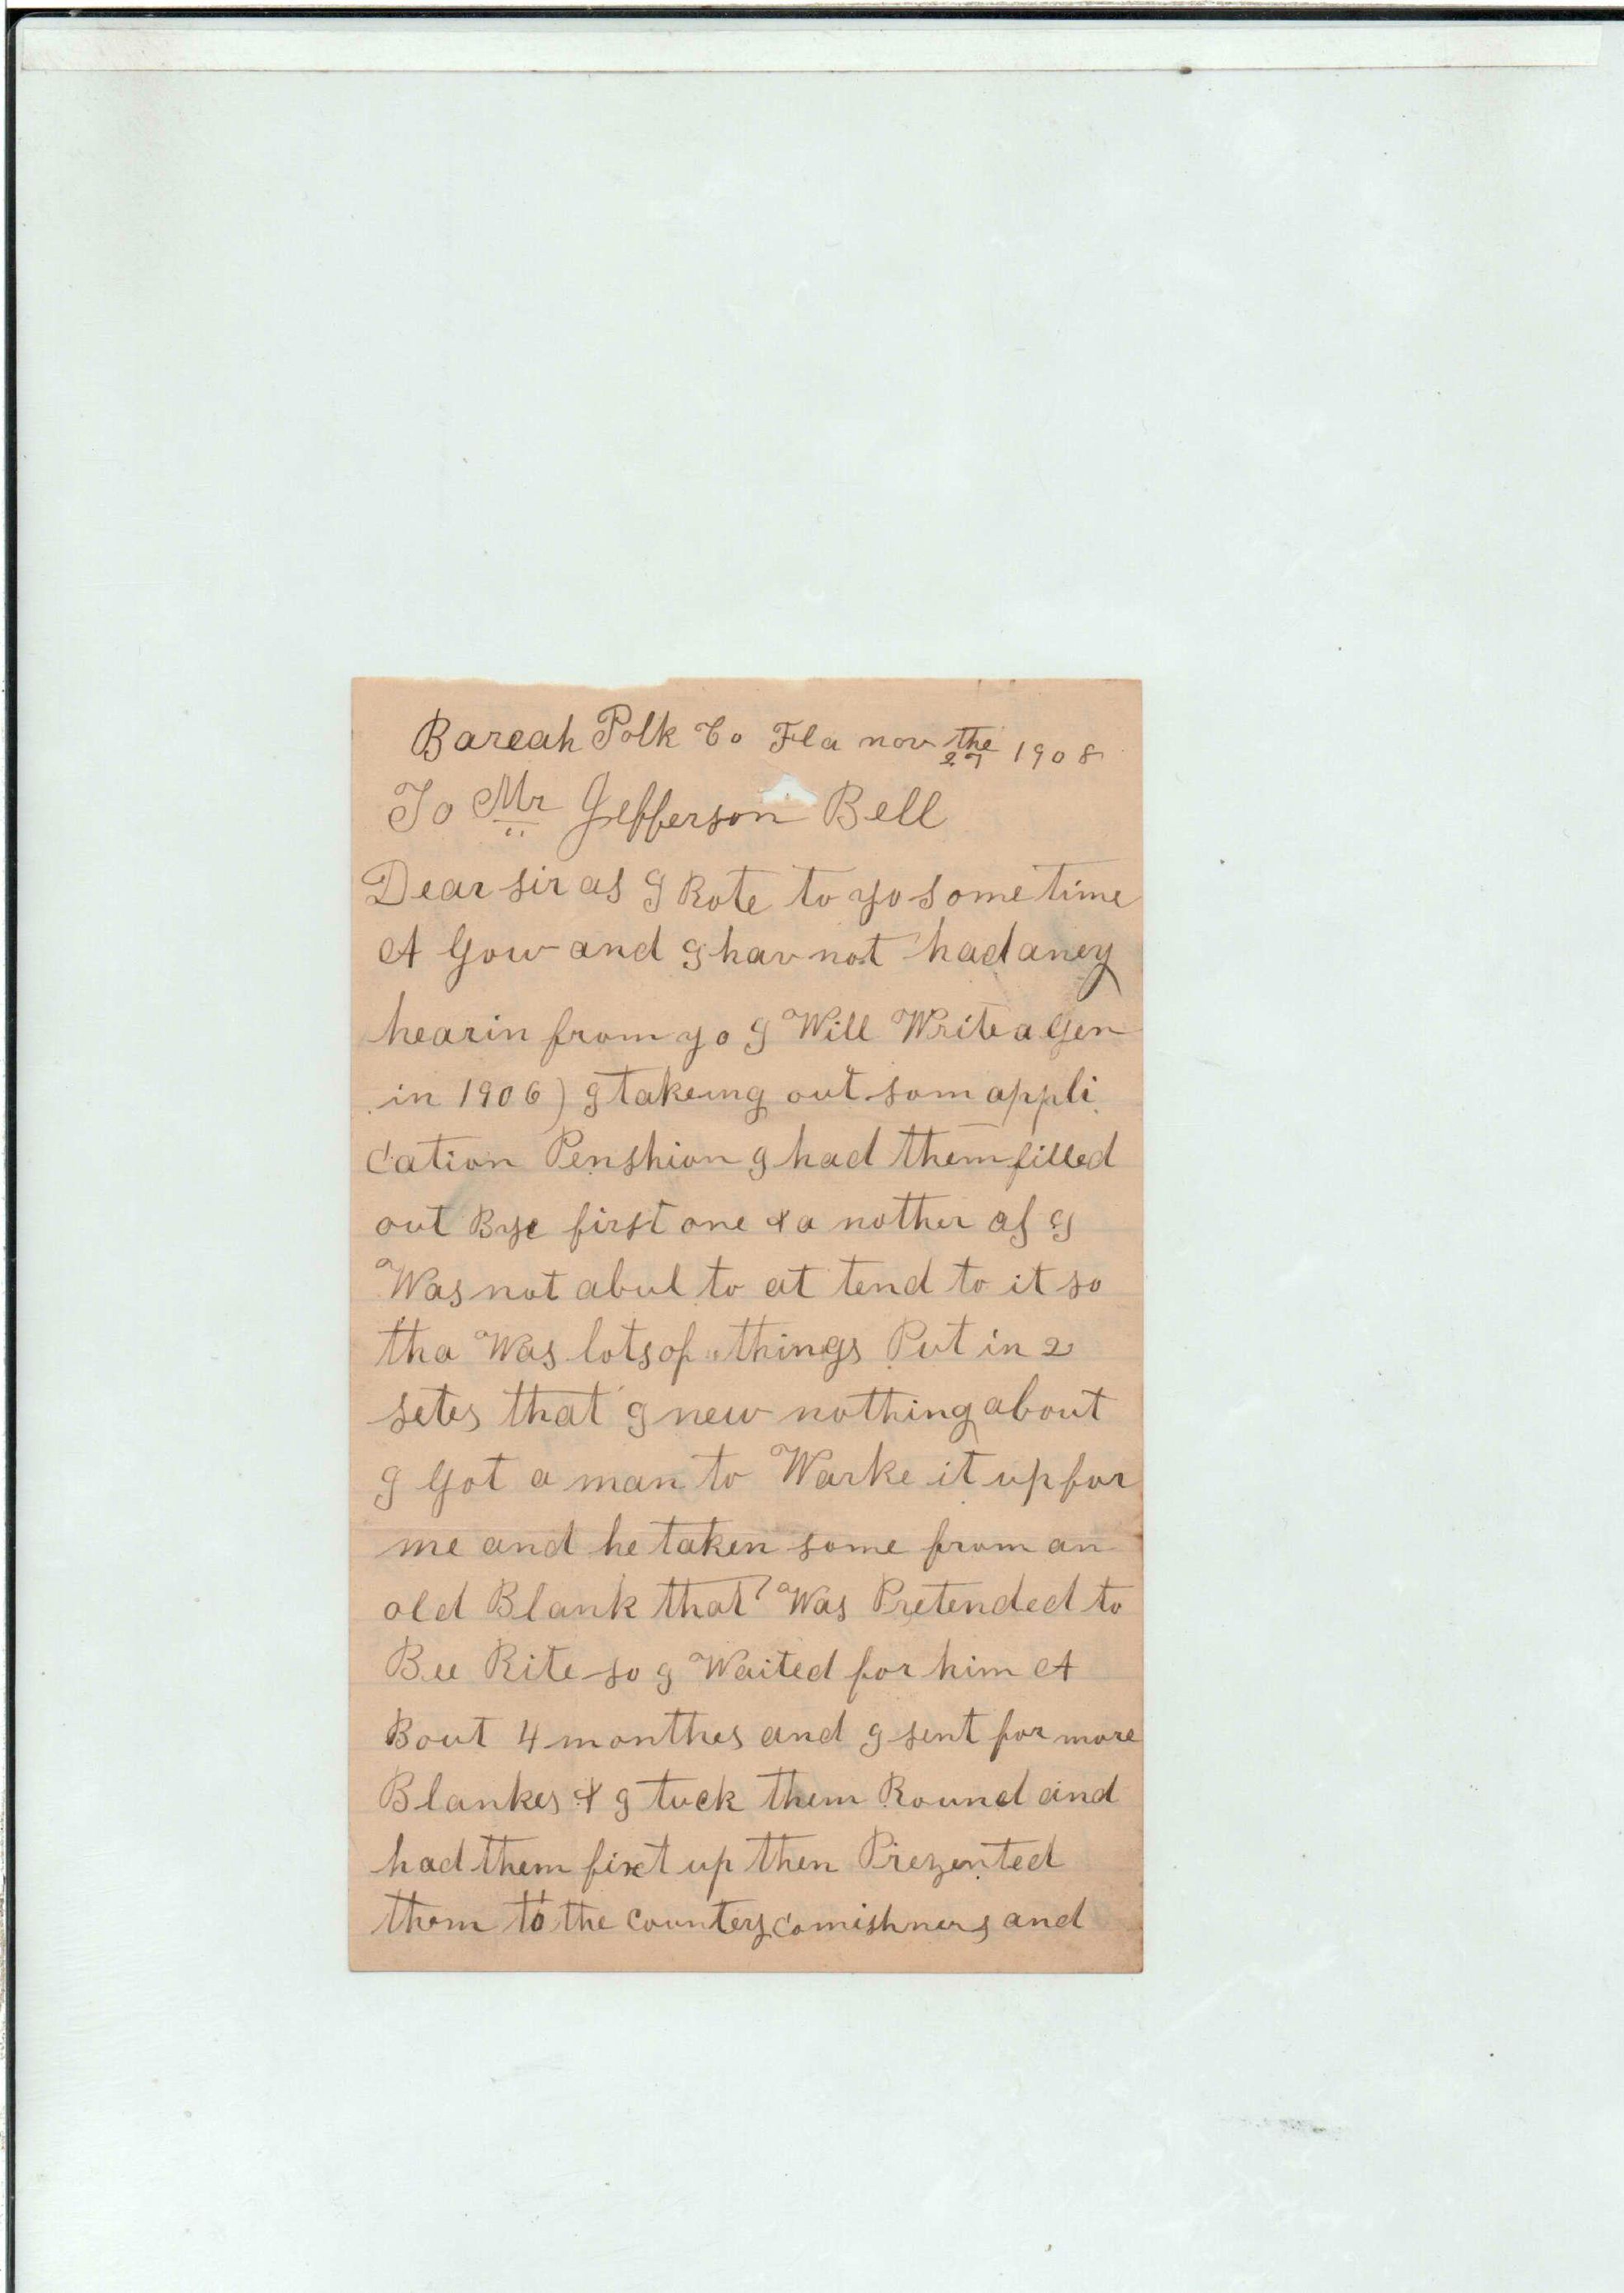 Bareah Polk Co Fla nov the 27 1908
To Mr Jefferson Bell
Dear sir as I Rote to yo some time
A Gow and I hav not had aney
hearin from yo I Will Write a Gen
in 1906) I takeing out som appli
cation Penshion I had them filled
out Bye first one & a nother as I
Was not abul to at tend to it so
tha Was lots of things Put in 2
setes that I new nothing about
I Got a man to Warke it up for
me and he taken some from an
old Blank that Was Pretended to
Bee Rite so I Waited for him A
Bout 4 monthes and I sent for more
Blankes & I tuck them Round and
had them fixt up then Prezented
them to the countey comishners and